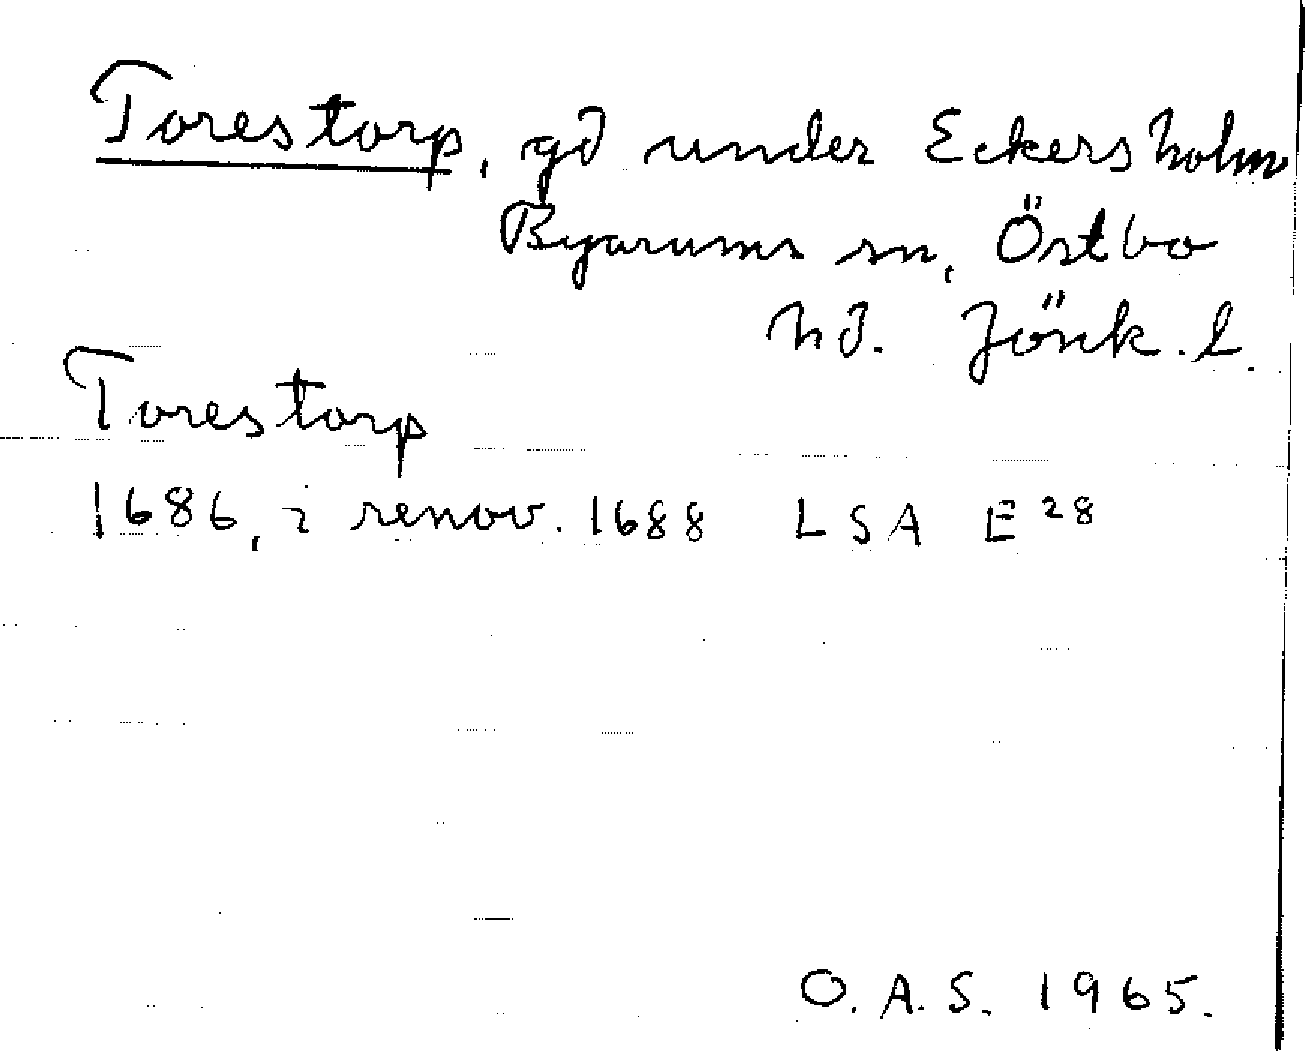 Torestorp, gd under Eckersholm
Byarums sn, Östbo
hd. Jönk. L.
Torestorp
1686, i renov. 1688 LSA E 28
O. A. S. 1965.